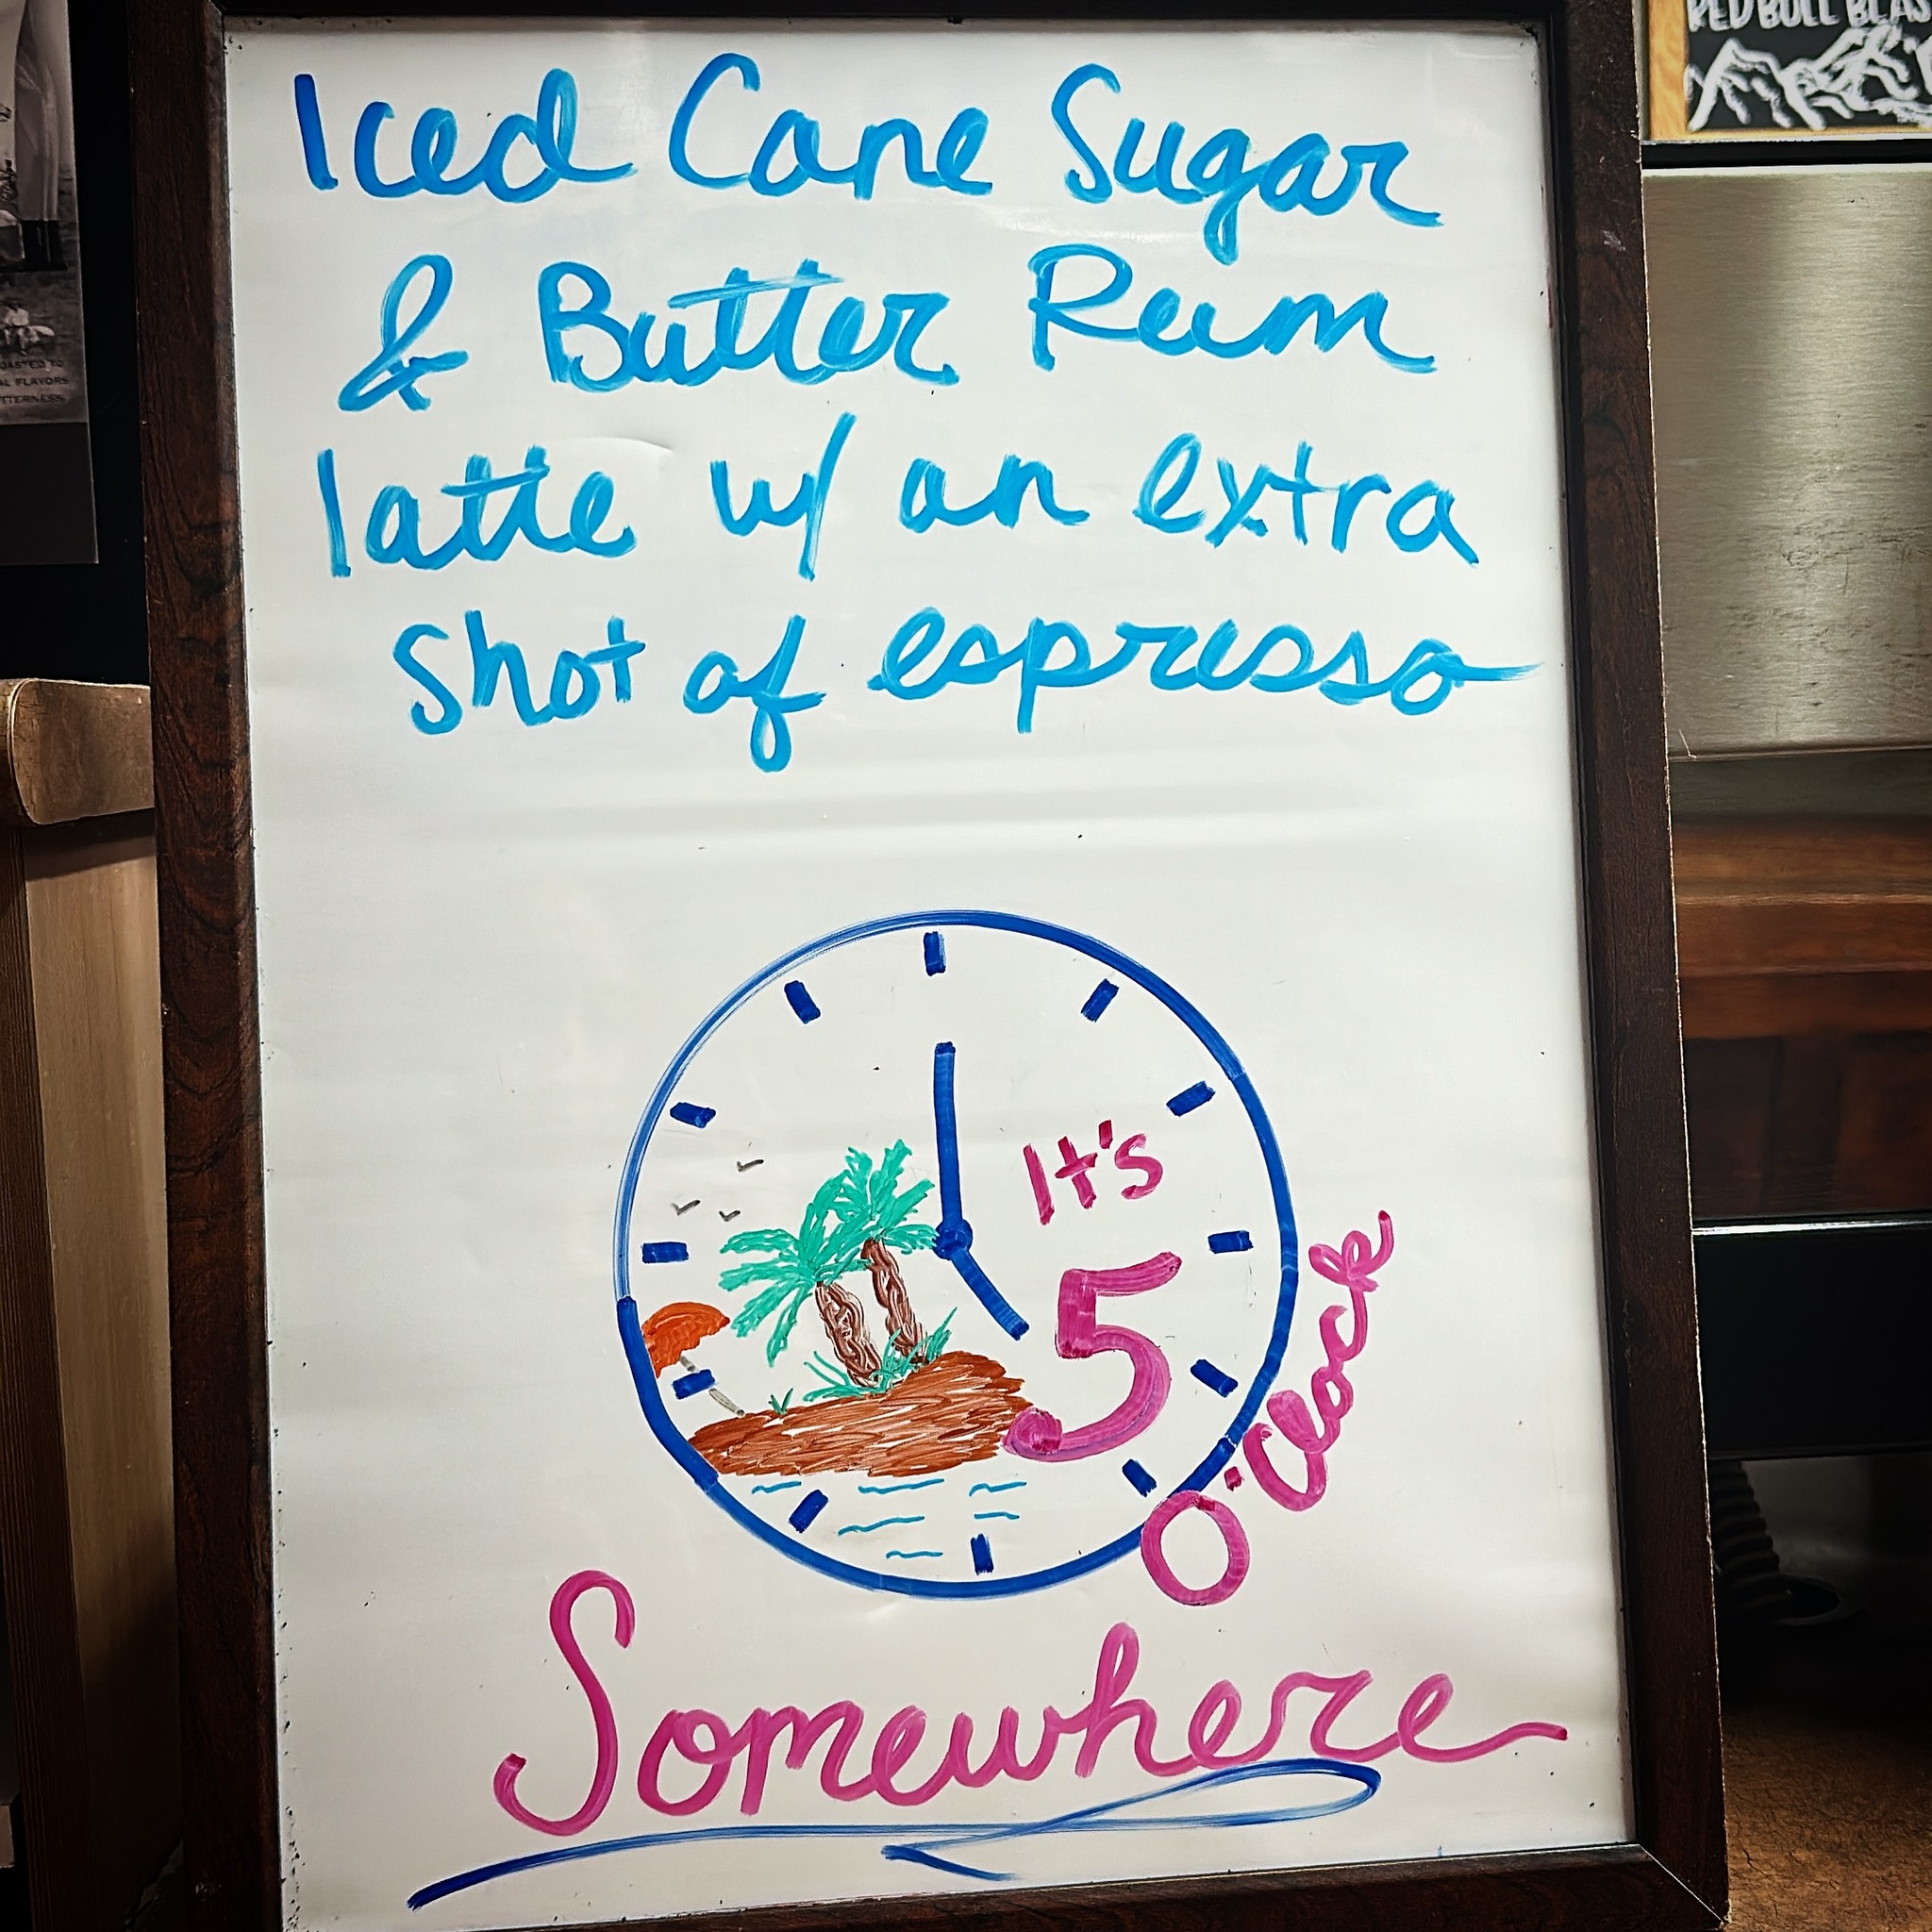 Iced Cane Sugar
& Butter Rum
latte w/ an extra
shot of espresso
It's
5
O'Clock
Somewhere
RED BULL BLAS
OASTED TO
AL FLAVORS
TTERNESS